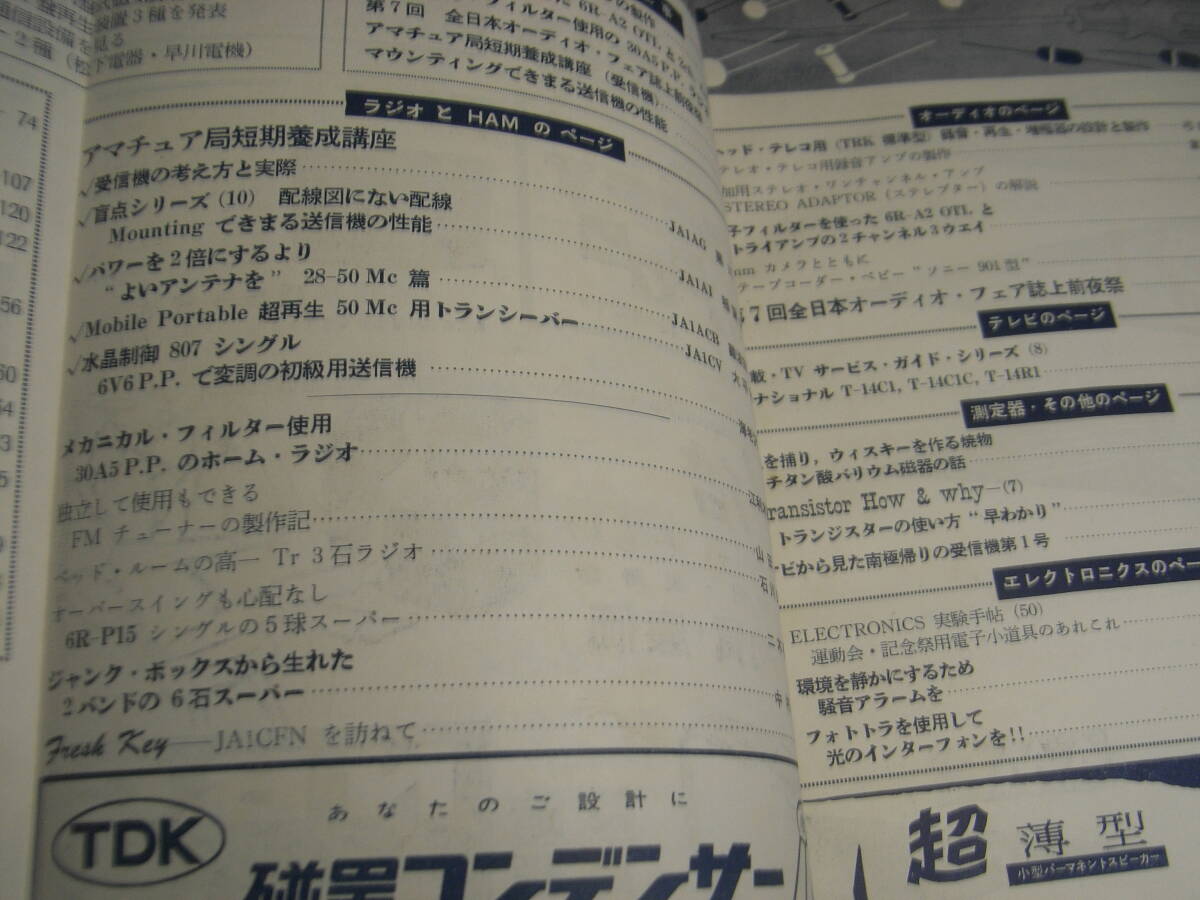 装置3種を発表
を見る
下電器・早川電機)
74
107
120
122
の製作
フィルター使用の 30A5 P.P.
第7回 全日本オーディオ・フェア誌上前夜祭
アマチュア局短期養成講座(受信機)
マウンティングできまる送信機の性能
ラジオと HAM のページ
アマチュア局短期養成講座
✓受信機の考え方と実際
✓盲点シリーズ(10) 配線図にない配線
Mounting できまる送信機の性能
JA1AG
✓パワーを2倍にするより
“よいアンテナを” 28-50 Mc 篇
JA1AJ
✓Mobile Portable 超再生 50 Mc 用トランシーバー
JA1ACB
✓水晶制御 807 シングル
6V6 P.P. で変調の初級用送信機
JA1CV
メカニカル・フィルター使用
30A5 P.P. のホーム・ラジオ
独立して使用もできる
FM チューナーの製作記
山
ベッド・ルームの高一 Tr 3石ラジオ
石
オーバースイングも心配なし
6R-P15 シングルの5球スーパー
ジャンク・ボックスから生れた
2バンドの 6石スーパー
中
Fresh Key──JA1CFN を訪ねて
あなたのご設計に
TDK
磁器コンデンサー
オーディオのページ
ヘッド・テレコ用(TRK 標準型)録音・再生・増幅器の設計と製作
テレオ・テレコ用録音アンプの製作
加用ステレオ・ワンチャンネル・アンプ
STEREO ADAPTOR(ステレプター)の解説
子フィルターを使った 6R-A2 OTL と
トライアンプの2チャンネル3ウエイ
mm カメラとともに
テープコーダー・ベビー“ソニー 901型”
第7回全日本オーディオ・フェア誌上前夜祭
テレビのページ
載・TV サービス・ガイド・シリーズ(8)
ナショナル T-14C1, T-14C1C, T-14R1
測定器・その他のページ
を捕り,ウィスキーを作る焼物
チタン酸バリウム磁器の話
ransistor How & why—(7)
トランジスターの使い方“早わかり”
ビから見た南極帰りの受信機第1号
エレクトロニクスのペー
ELECTRONICS 実験手帖(50)
運動会・記念祭用電子小道具のあれこれ
環境を静かにするため
騒音アラームを
フォトトラを使用して
光のインターフォンを!!
超薄型
小型パーマネントスピーカー